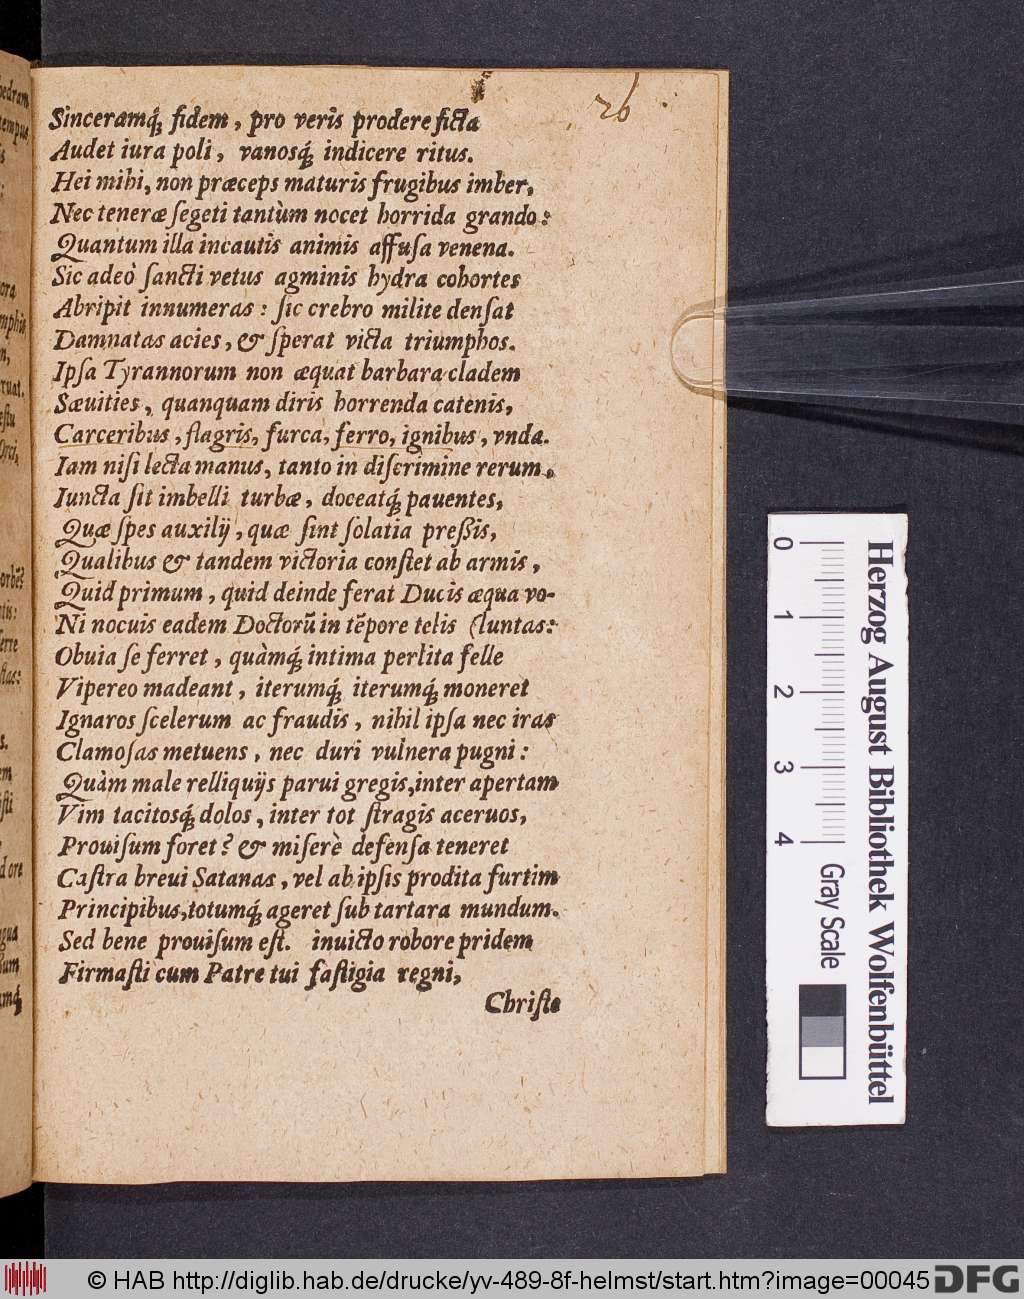 26
Sinceramq́; fidem, pro veris prodere ficta
Audet iura poli, vanosq́; indicere ritus.
Hei mihi, non præceps maturis frugibus imber,
Nec teneræ ſegeti tantùm nocet horrida grando:
Quantum illa incautis animis affuſa venena.
Sic adeò ſancti vetus agminis hydra cohortes
Abripit innumeras: ſic crebro milite denſat
Damnatas acies, & ſperat victa triumphos.
Ipſa Tyrannorum non æquat barbara cladem
Sæuities, quanquam diris horrenda catenis,
Carceribus, flagris, furca, ferro, ignibus, vnda.
Iam niſi lecta manus, tanto in diſcrimine rerum,
Iuncta ſit imbelli turbæ, doceatq́; pauentes,
Quæ ſpes auxilij, quæ ſint ſolatia preßis,
Qualibus & tandem victoria conſtet ab armis,
Quid primum, quid deinde ferat Ducis æqua vo-
Ni nocuis eadem Doctorū in tēpore telis (luntas:
Obuia ſe ferret, quàmq́; intima perlita felle
Vipereo madeant, iterumq́; iterumq́; moneret
Ignaros ſcelerum ac fraudis, nihil ipſa nec iras
Clamoſas metuens, nec duri vulnera pugni:
Quàm male relliquijs parui gregis, inter apertam
Vim tacitosq́; dolos, inter tot ſtragis aceruos,
Prouiſum foret? & miſerè defenſa teneret
Caſtra breui Satanas, vel ab ipſis prodita furtim
Principibus, totumq́; ageret ſub tartara mundum.
Sed bene prouiſum eſt. inuicto robore pridem
Firmaſti cum Patre tui faſtigia regni,
Chriſte
Herzog August Bibliothek Wolfenbüttel
0 1 2 3 4
Gray Scale
© HAB http://diglib.hab.de/drucke/yv-489-8f-helmst/start.htm?image=00045
DFG